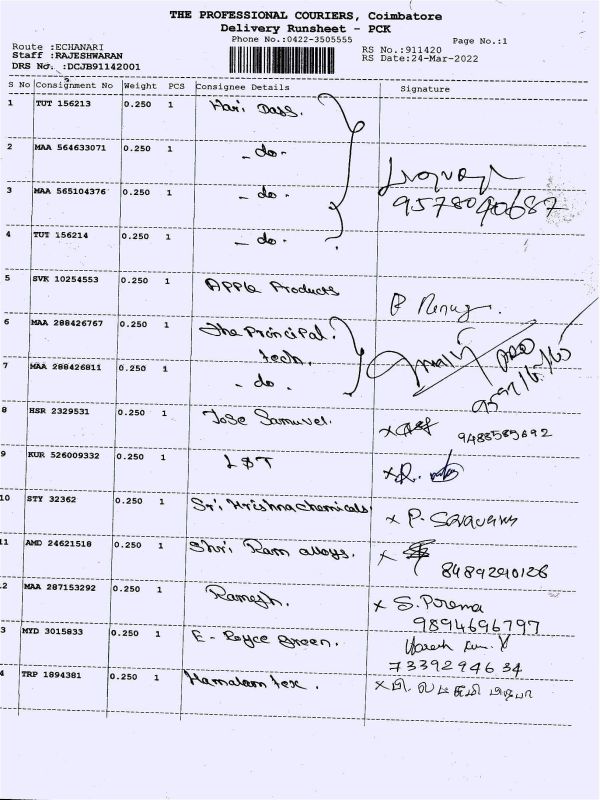 THE PROFESSIONAL COURIERS, Coimbatore
Delivery Runsheet - PCK
Phone No.:0422-3505555
Page No.:1
Route :ECHANARI
Staff :RAJESHWARAN
DRS No. :DCJB91142001
RS No.:911420
RS Date:24-Mar-2022
S No Consignment No Weight PCS Consignee Details Signature
1 TUT 156213 0.250 1 Hari Dass.
2 MAA 564633071 0.250 1 - do -
3 MAA 565104376 0.250 1 - do -
9578090687
4 TUT 156214 0.250 1 - do -
5 SVK 10254553 0.250 1 Apple Products
6 MAA 288426767 0.250 1 The Principal.
tech.
7 MAA 288426811 0.250 1 - do -
8 HSR 2329531 0.250 1 Jose Samuvel. x
9488585692
9 KUR 526009332 0.250 1 L&T x
10 STY 32362 0.250 1 Sri Krishna chemicals x P. Saravanan
11 AMD 24621518 0.250 1 Shri Ram alloys. x
8489290126
2 MAA 287153292 0.250 1 Ramesh. x S. Prema
9894696797
3 MYD 3015833 0.250 1 E - Royce Green.
7339294634
4 TRP 1894381 0.250 1 x